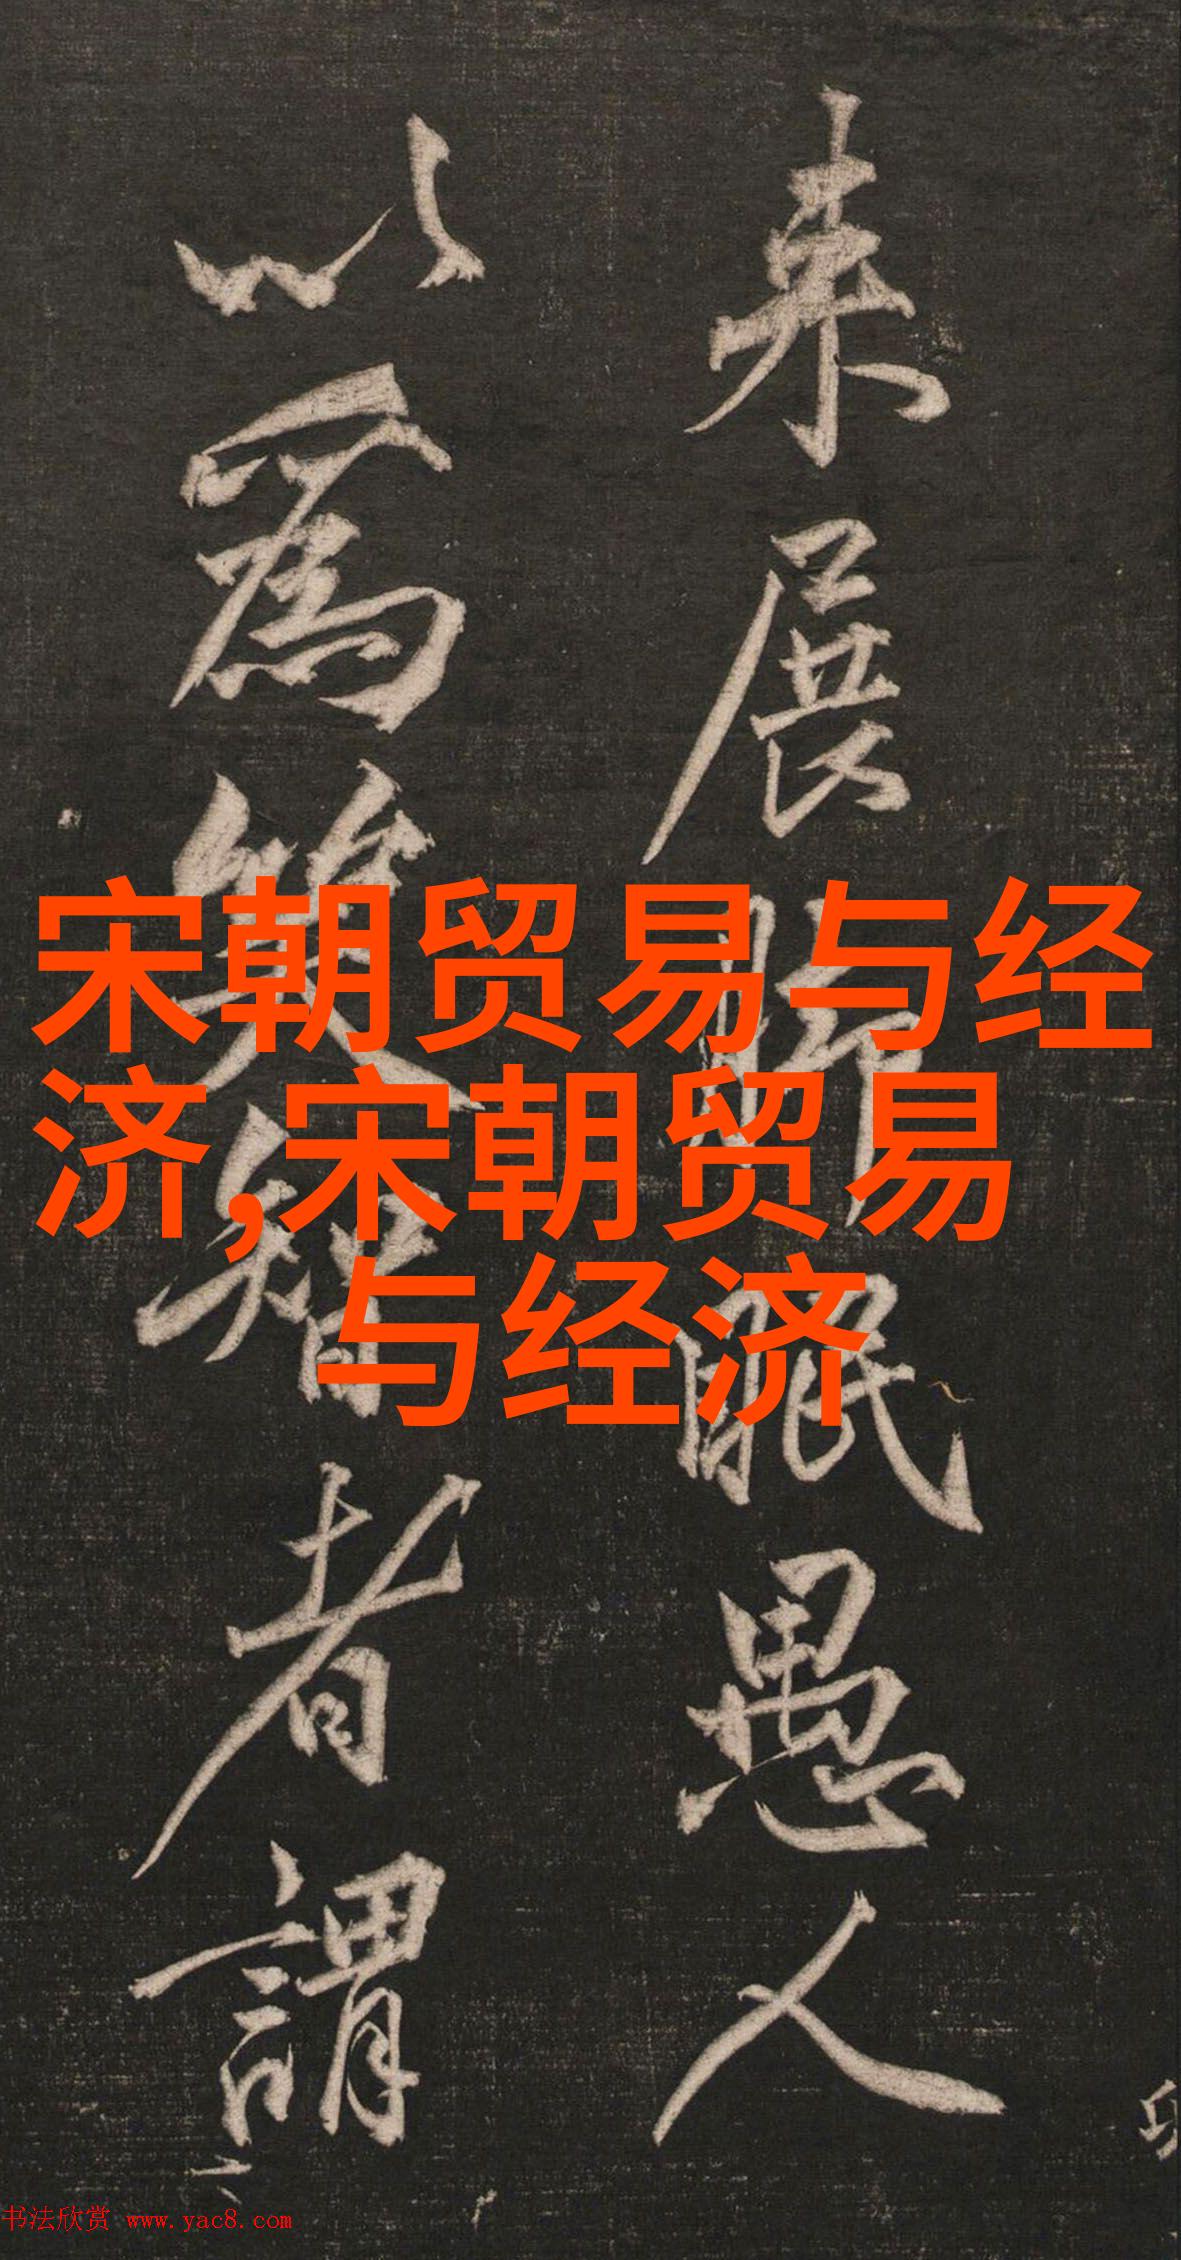 来展脚眠愚人
以為笑智者謂
宋朝贸易与经
济,宋朝贸易
与经济
书法欣赏 www.yac8.com